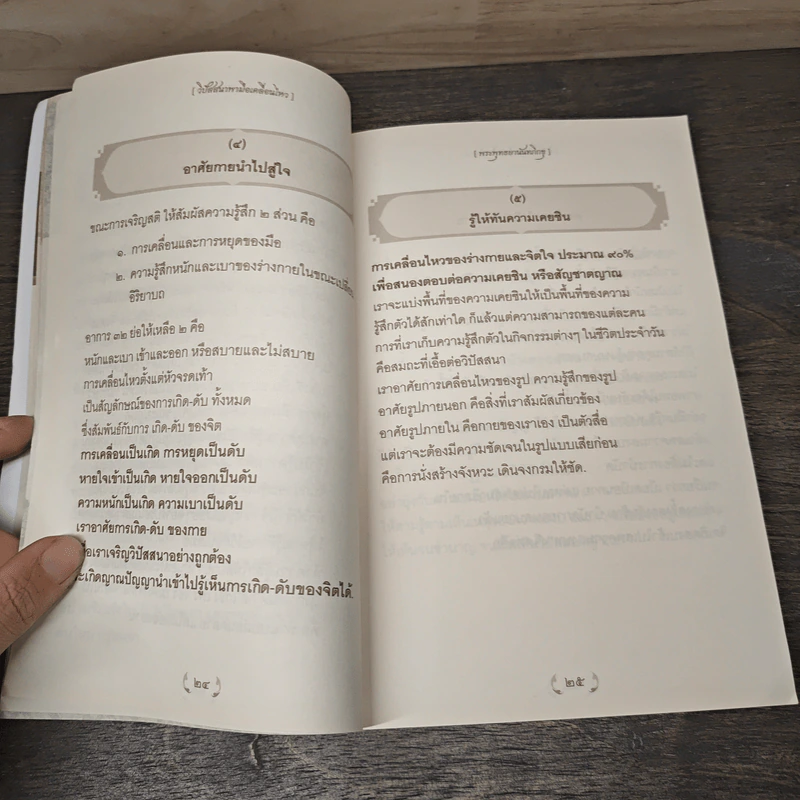 [ วิปัสสนาพามือเคลื่อนไหว ]
(๔)
อาศัยกายนำไปสู่ใจ
ขณะการเจริญสติ ให้สัมผัสความรู้สึก ๒ ส่วน คือ
๑. การเคลื่อนและการหยุดของมือ
๒. ความรู้สึกหนักและเบาของร่างกายในขณะเปลี่ยน
อิริยาบถ
อาการ ๓๒ ย่อให้เหลือ ๒ คือ
หนักและเบา เข้าและออก หรือสบายและไม่สบาย
การเคลื่อนไหวตั้งแต่หัวจรดเท้า
เป็นสัญลักษณ์ของการเกิด-ดับ ทั้งหมด
ซึ่งสัมพันธ์กับการ เกิด-ดับ ของจิต
การเคลื่อนเป็นเกิด การหยุดเป็นดับ
หายใจเข้าเป็นเกิด หายใจออกเป็นดับ
ความหนักเป็นเกิด ความเบาเป็นดับ
เราอาศัยการเกิด-ดับ ของกาย
เราเจริญวิปัสสนาอย่างถูกต้อง
เกิดญาณปัญญานำเข้าไปรู้เห็นการเกิด-ดับของจิตได้.
๒๔
[ พระพุทธยานันทภิกขุ ]
(๕)
รู้ให้ทันความเคยชิน
การเคลื่อนไหวของร่างกายและจิตใจ ประมาณ ๙๐%
เพื่อสนองตอบต่อความเคยชิน หรือสัญชาตญาณ
เราจะแบ่งพื้นที่ของความเคยชินให้เป็นพื้นที่ของความ
รู้สึกตัวได้สักเท่าใด ก็แล้วแต่ความสามารถของแต่ละคน
การที่เราเก็บความรู้สึกตัวในกิจกรรมต่างๆ ในชีวิตประจำวัน
คือสมถะที่เอื้อต่อวิปัสสนา
เราอาศัยการเคลื่อนไหวของรูป ความรู้สึกของรูป
อาศัยรูปภายนอก คือสิ่งที่เราสัมผัสเกี่ยวข้อง
อาศัยรูปภายใน คือกายของเราเอง เป็นตัวสื่อ
แต่เราจะต้องมีความชัดเจนในรูปแบบเสียก่อน
คือการนั่งสร้างจังหวะ เดินจงกรมให้ชัด.
๒๕